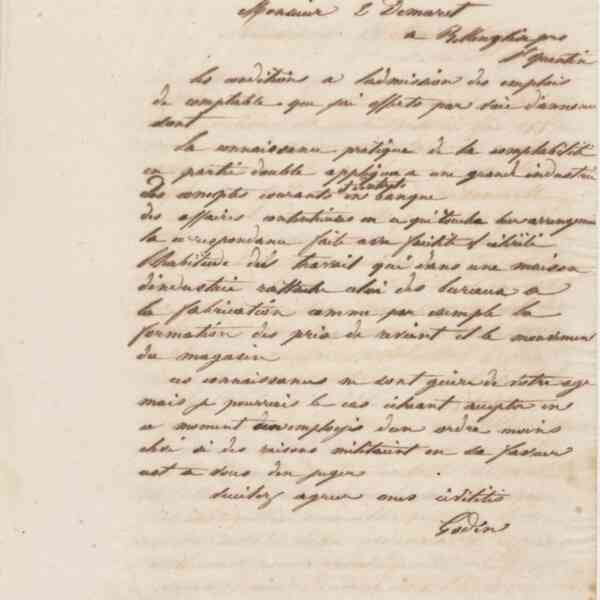 Monsieur E Demaret
a Bellenglise pres
St quentin
Les conditions a l'admission des emplois
de comptable que j'ai offerts par voie d'annonce
sont
La connaissance pratique de la comptabilité
en partie double appliquée a une grande industrie
Des comptes courants et en banque
des affaires contentieuses en ce qui touche leur arrangement
la correspondance faite avec facilité et
L'habitude du travail qui dans une maison
d'industrie rattache celui des bureaux a
la fabrication comme par exemple la
formation des prix de revient et le mouvement
du magasin
ces connaissances ne sont guère de votre age
mais je pourrais le cas échéant accepter en
ce moment un employé d'un ordre moins
élevé si des raisons militaient en sa faveur
c'est a vous d'en juger
Veuillez agréer mes civilités
Godin